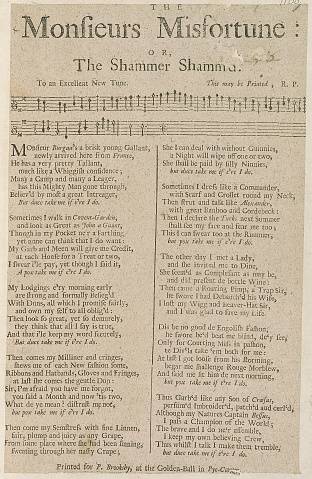 THE
Monsieurs Misfortune:
OR,
The Shammer Shamm'd.
To an Excellent New Tune. This may be Printed, R. P.
Monsieur a brisk young Gallant,
newly arrived here from France,
He has a very pretty Tallant,
much like a Whiggish confidence;
Many a Camp and many a Leager,
has this Mighty Man gone through,
Believ'd by most a great Intreager,
But duce take me if e're I do.
Sometimes I walk in Covent-Garden,
and look as Great as John a Gaunt,
Though in my Pocket ne're a Farthing,
yet none can think that I do want:
My Garb and Meen will give me Credit,
at each for a Treat or two,
I swear I'le pay, yet though I said it,
A pox take me if e're I do.
My Lodgings e'ry morning early
are strong and formally besieg'd
With Duns, all which I promise fairly,
and own my self to all oblig'd:
Then look so great, yet so demurely,
they think that all I say is true,
And that i'le keep my word securely,
But duce take me if e're I do.
Then comes my Milliner and cringes,
shews me of each New fashion some,
Ribons and Hatbands, Gloves and Fringes,
at last she comes the gentle Dun:
Sir, I'm afraid you have me forgot,
you said a Month and now 'tis two,
What do ye mean? distrust me not,
but pox take me if e're I do.
Then come my Semstress with fine Linnen,
fair, plump and juicy as any Grape,
From some place where she had been sinning,
sweating through her nasty Crape;
She I can deal with without Guinnies,
a Night will wipe off one or two,
She shall be paid by silly Ninnies,
but duce take me if e're I do.
Sometimes I dress like a Commander,
with Scarf and Crosset round my Neck,
Then strut and talk like Alexander,
with great Bonboo and Cordebeck:
Then I declare the next Summer
shall see my face and fear me too;
This I can swear too at the Rummer,
but pox take me if e're I do.
The other day I met a Lady,
and she invited me to Dine,
She seem'd as Complesant as may be,
and did present de bottle Wine:
Then came a Roaring Pimp, a Trap Sir,
he swore I had Debauch'd his Wife,
I lost my Wigg and beaver-Hat Sir,
and I was glad to save my Life.
Dis be no good de Engelish Fashon,
he swore he'd beat me blind, de'y see,
Only for Courting Miss in passon,
be Dis'la take 'em both for me:
At last I got loose from his storming,
begar me Challenge Rouge Morblew,
And said me sit him de next morning,
but pox take me if e're I do.
Thus Garb'd like any Son of Cræsar,
perfum'd Embroider'd, patch'd and curl'd,
Although my Natures Captain
I pass a Champion of the World;
The brave and I do ne're assemble,
I keep my own believing Crew,
Thus whilst I talk I make them tremble,
but pox take me if e're I do.
Printed for P. Brooksby, at the Golden-Ball in Pye-Corner.